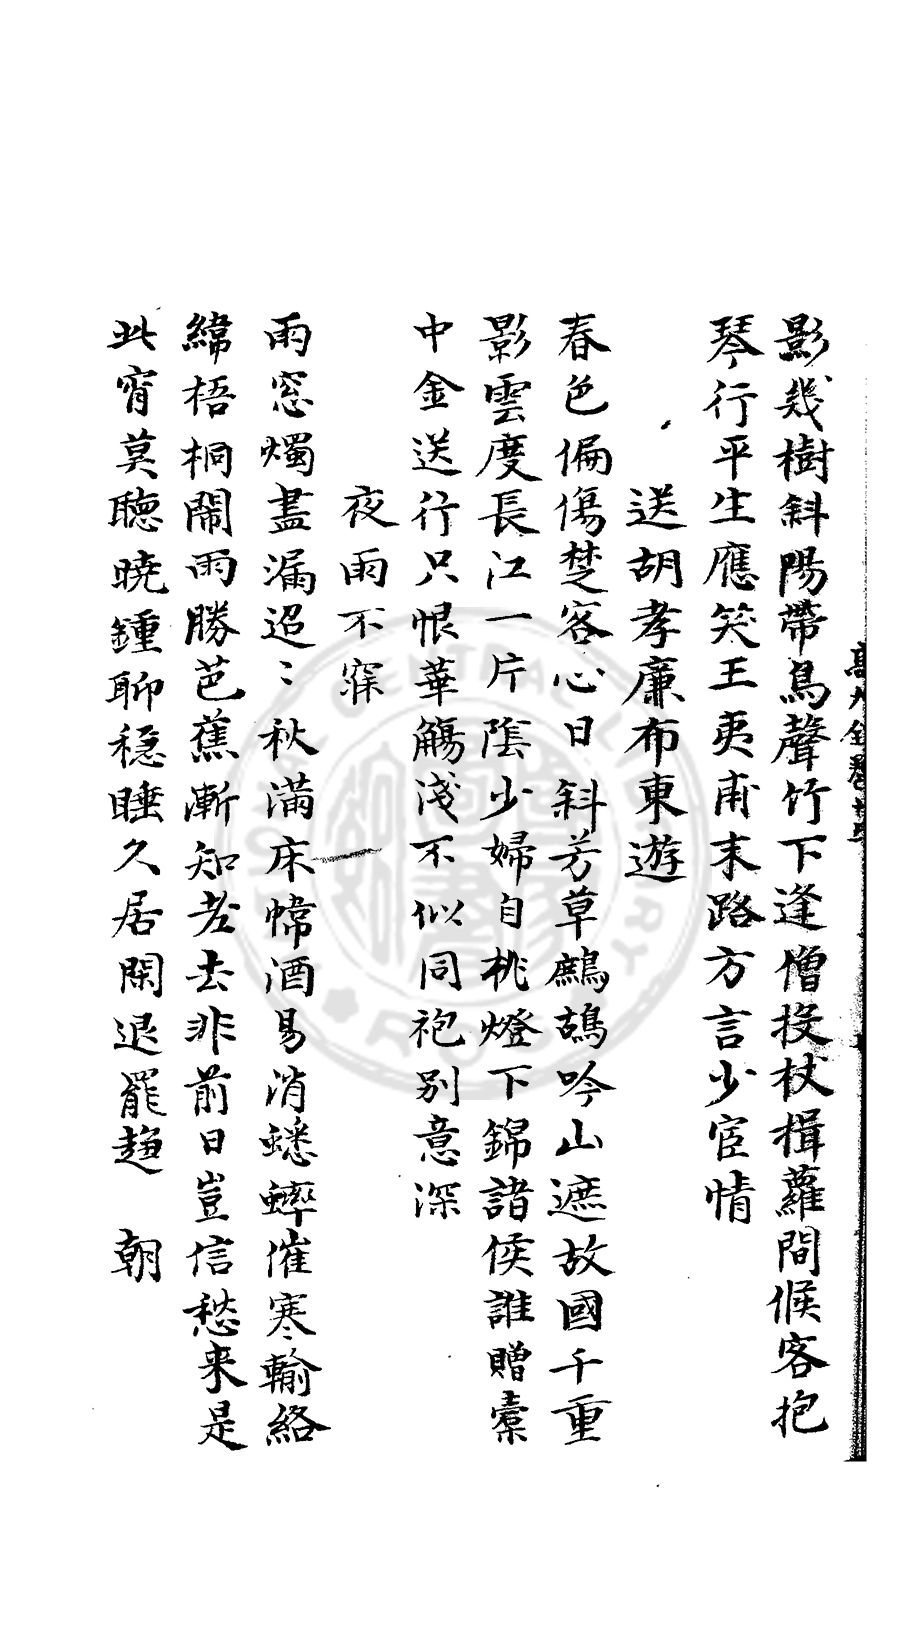 影幾樹斜陽帶鳥聲竹下逢僧投杖揖蘿間候客抱
琴行平生應笑王夷甫末路方言少宦情
送胡孝廉布東遊
春色偏傷楚客心日斜芳草鷓鴣吟山遮故國千重
影雲度長江一片陰少婦自挑燈下錦諸侯誰贈橐
中金送行只恨華觴淺不似同袍別意深
夜雨不寐
雨窓燭盡漏迢〻秋滿床幃酒易消蟋蟀催寒輸絡
緯梧桐鬧雨勝芭蕉漸知老去非前日豈信愁来是
此宵莫聽曉鍾聊穏睡久居閑退罷趨 朝
NATIONAL CENTRAL LIBRARY